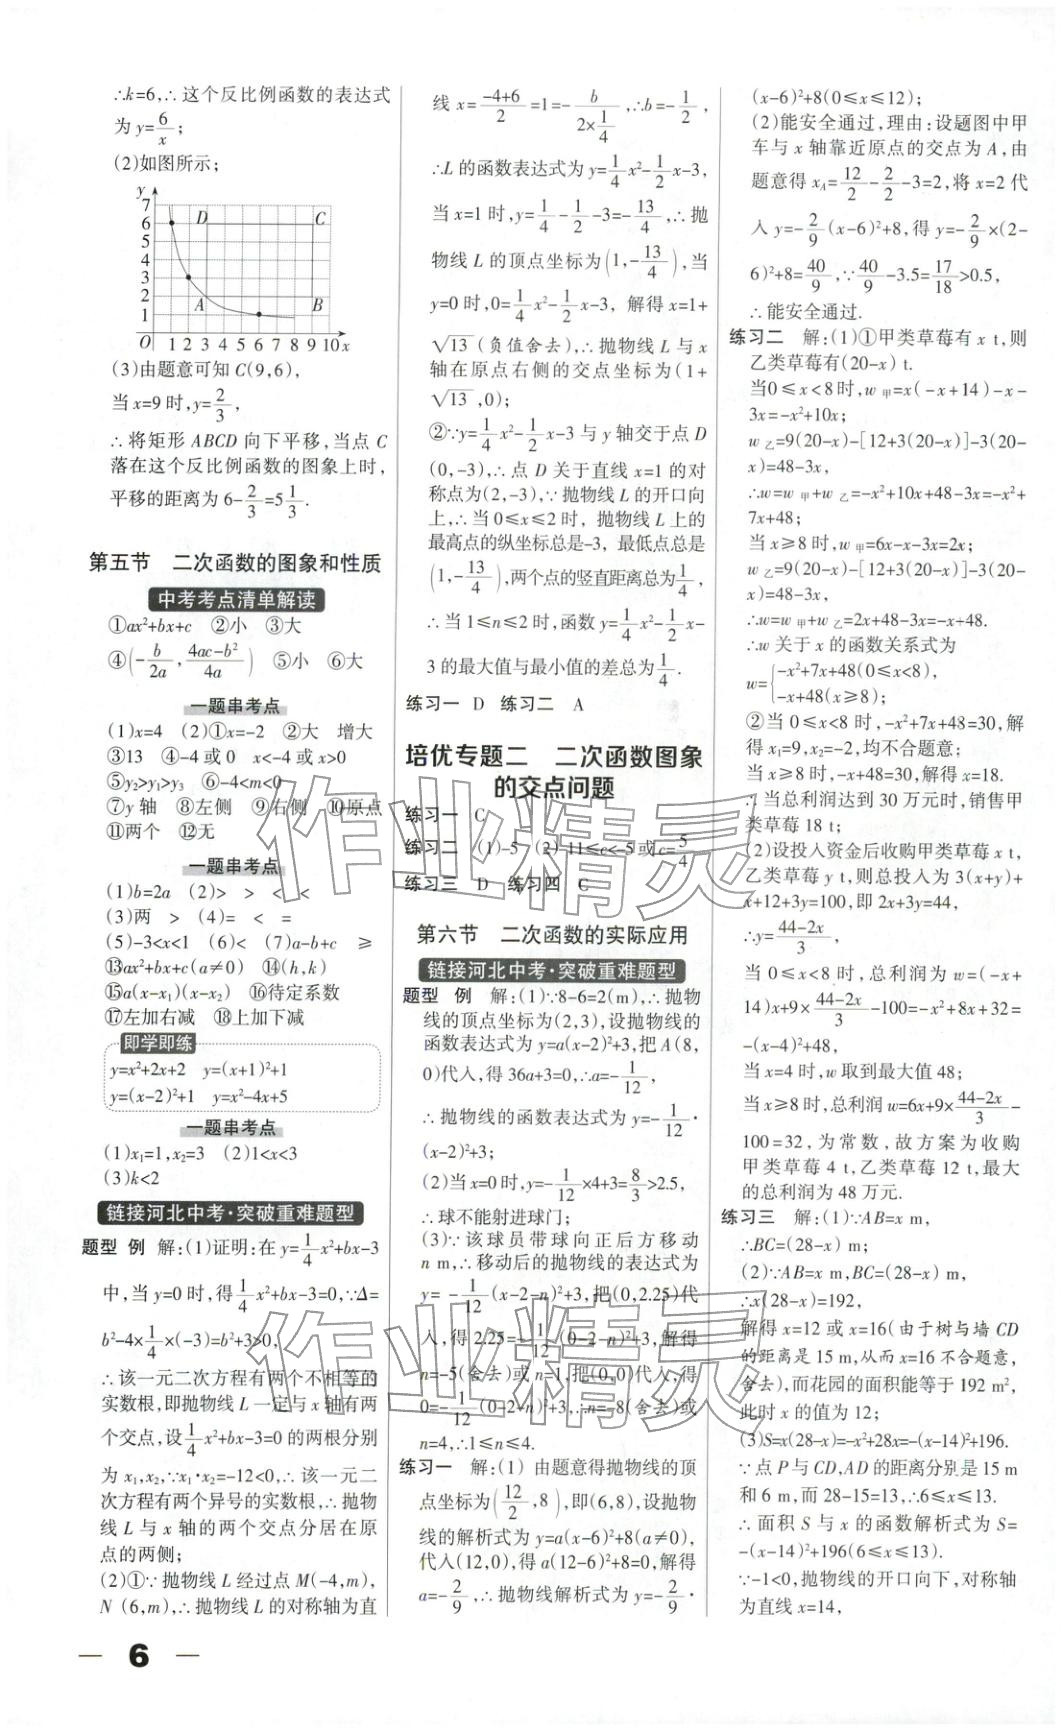 ∴k=6,∴这个反比例函数的表达式
为y=6/x;
(2)如图所示;
y
7
6
5
4
3
2
1
D C
A B
O 1 2 3 4 5 6 7 8 9 10 x
(3)由题意可知C(9,6),
当x=9时,y=2/3,
∴将矩形ABCD向下平移,当点C
落在这个反比例函数的图象上时,
平移的距离为6-2/3=5 1/3.
第五节 二次函数的图象和性质
中考考点清单解读
①ax²+bx+c ②小 ③大
④(-b/2a,(4ac-b²)/4a) ⑤小 ⑥大
一题串考点
(1)x=4 (2)①x=-2 ②大 增大
③13 ④-4或0 x<-4或x>0
⑤y₂>y₁>y₃ ⑥-4<m<0
⑦y轴 ⑧左侧 ⑨右侧 ⑩原点
⑪两个 ⑫无
一题串考点
(1)b=2a (2)> > < <
(3)两 > (4)= < =
(5)-3<x<1 (6)< (7)a-b+c ≥
⑬ax²+bx+c(a≠0) ⑭(h,k)
⑮a(x-x₁)(x-x₂) ⑯待定系数
⑰左加右减 ⑱上加下减
即学即练
y=x²+2x+2 y=(x+1)²+1
y=(x-2)²+1 y=x²-4x+5
一题串考点
(1)x₁=1,x₂=3 (2)1<x<3
(3)k<2
链接河北中考·突破重难题型
题型 例 解:(1)证明:在y=1/4x²+bx-3
中,当y=0时,得1/4x²+bx-3=0,∵Δ=
b²-4×1/4×(-3)=b²+3>0,
∴该一元二次方程有两个不相等的
实数根,即抛物线L一定与x轴有两
个交点,设1/4x²+bx-3=0的两根分别
为x₁,x₂,∵x₁·x₂=-12<0,∴该一元二
次方程有两个异号的实数根,∴抛物
线L与x轴的两个交点分居在原
点的两侧;
(2)①∵抛物线L经过点M(-4,m),
N(6,m),∴抛物线L的对称轴为直
线x=(-4+6)/2=1=-b/(2×1/4),∴b=-1/2,
∴L的函数表达式为y=1/4x²-1/2x-3,
当x=1时,y=1/4-1/2-3=-13/4,∴抛
物线L的顶点坐标为(1,-13/4),当
y=0时,0=1/4x²-1/2x-3,解得x=1+
√13(负值舍去),∴抛物线L与x
轴在原点右侧的交点坐标为(1+
√13,0);
②∵y=1/4x²-1/2x-3与y轴交于点D
(0,-3),∴点D关于直线x=1的对
称点为(2,-3),∵抛物线L的开口向
上,∴当0≤x≤2时,抛物线L上的
最高点的纵坐标总是-3,最低点总是
(1,-13/4),两个点的竖直距离总为1/4,
∴当1≤n≤2时,函数y=1/4x²-1/2x-
3的最大值与最小值的差总为1/4.
练习一 D 练习二 A
培优专题二 二次函数图象
的交点问题
练习一 C
练习二 (1)-5 (2)-11≤c<-5或c=5/4
练习三 D 练习四 C
第六节 二次函数的实际应用
链接河北中考·突破重难题型
题型 例 解:(1)∵8-6=2(m),∴抛物
线的顶点坐标为(2,3),设抛物线的
函数表达式为y=a(x-2)²+3,把A(8,
0)代入,得36a+3=0,∴a=-1/12,
∴抛物线的函数表达式为y=-1/12·
(x-2)²+3;
(2)当x=0时,y=-1/12×4+3=8/3>2.5,
∴球不能射进球门;
(3)∵该球员带球向正后方移动
n m,∴移动后的抛物线的表达式为
y=-1/12(x-2-n)²+3,把(0,2.25)代
入,得2.25=-1/12(0-2-n)²+3,解得
n=-5(舍去)或n=1,把(0,0)代入,得
0=-1/12(0-2-n)²+3,∴n=-8(舍去)或
n=4,∴1≤n≤4.
练习一 解:(1)由题意得抛物线的顶
点坐标为(12/2,8),即(6,8),设抛物
线的解析式为y=a(x-6)²+8(a≠0),
代入(12,0),得a(12-6)²+8=0,解得
a=-2/9,∴抛物线解析式为y=-2/9·
(x-6)²+8(0≤x≤12);
(2)能安全通过,理由:设题图中甲
车与x轴靠近原点的交点为A,由
题意得x_A=12/2-2/2-3=2,将x=2代
入y=-2/9(x-6)²+8,得y=-2/9×(2-
6)²+8=40/9,∵40/9-3.5=17/18>0.5,
∴能安全通过.
练习二 解:(1)①甲类草莓有x t,则
乙类草莓有(20-x) t.
当0≤x<8时,w甲=x(-x+14)-x-
3x=-x²+10x;
w乙=9(20-x)-[12+3(20-x)]-3(20-
x)=48-3x,
∴w=w甲+w乙=-x²+10x+48-3x=-x²+
7x+48;
当x≥8时,w甲=6x-x-3x=2x;
w乙=9(20-x)-[12+3(20-x)]-3(20-
x)=48-3x,
∴w=w甲+w乙=2x+48-3x=-x+48.
∴w关于x的函数关系式为
w={-x²+7x+48(0≤x<8),
-x+48(x≥8);
②当0≤x<8时,-x²+7x+48=30,解
得x₁=9,x₂=-2,均不合题意;
当x≥8时,-x+48=30,解得x=18.
∴当总利润达到30万元时,销售甲
类草莓18 t;
(2)设投入资金后收购甲类草莓x t,
乙类草莓y t,则总投入为3(x+y)+
x+12+3y=100,即2x+3y=44,
∴y=(44-2x)/3,
当0≤x<8时,总利润为w=(-x+
14)x+9×(44-2x)/3-100=-x²+8x+32=
-(x-4)²+48,
当x=4时,w取到最大值48;
当x≥8时,总利润w=6x+9×(44-2x)/3-
100=32,为常数,故方案为收购
甲类草莓4 t,乙类草莓12 t,最大
的总利润为48万元.
练习三 解:(1)∵AB=x m,
∴BC=(28-x) m;
(2)∵AB=x m,BC=(28-x) m,
∴x(28-x)=192,
解得x=12或x=16(由于树与墙CD
的距离是15 m,从而x=16不合题意,
舍去),而花园的面积能等于192 m²,
此时x的值为12;
(3)S=x(28-x)=-x²+28x=-(x-14)²+196.
∵点P与CD,AD的距离分别是15 m
和6 m,而28-15=13,∴6≤x≤13.
∴面积S与x的函数解析式为S=
-(x-14)²+196(6≤x≤13).
∵-1<0,抛物线的开口向下,对称轴
为直线x=14,
— 6 —
作业精灵
作业精灵